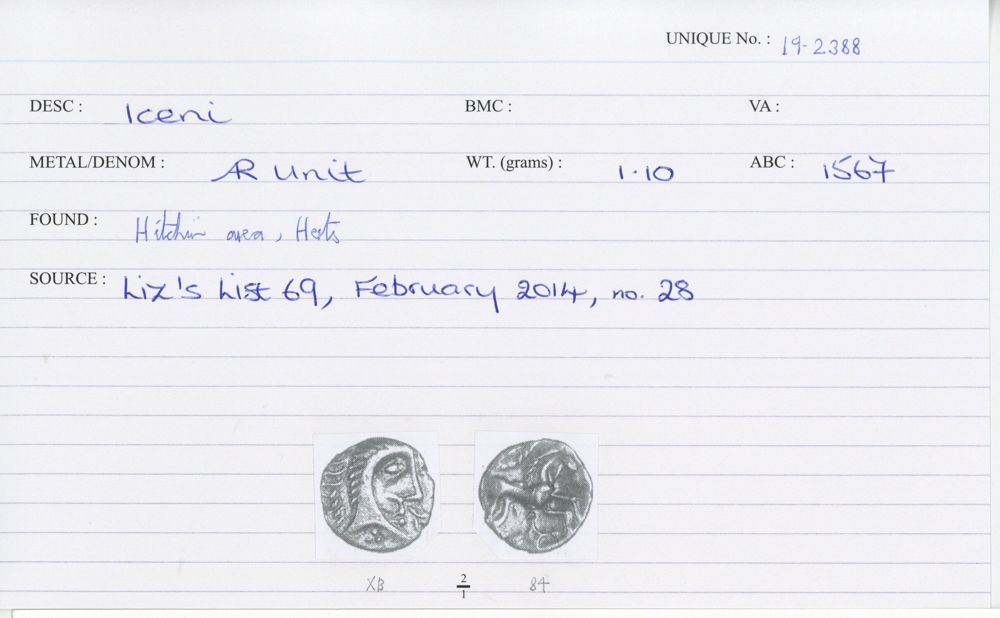 UNIQUE No. : 19-2388
DESC : Iceni BMC : VA :
METAL/DENOM : AR Unit WT. (grams) : 1.10 ABC : 1567
FOUND : Hitchin area, Herts
SOURCE : Liz's List 69, February 2014, no. 28
XB 2/1 84